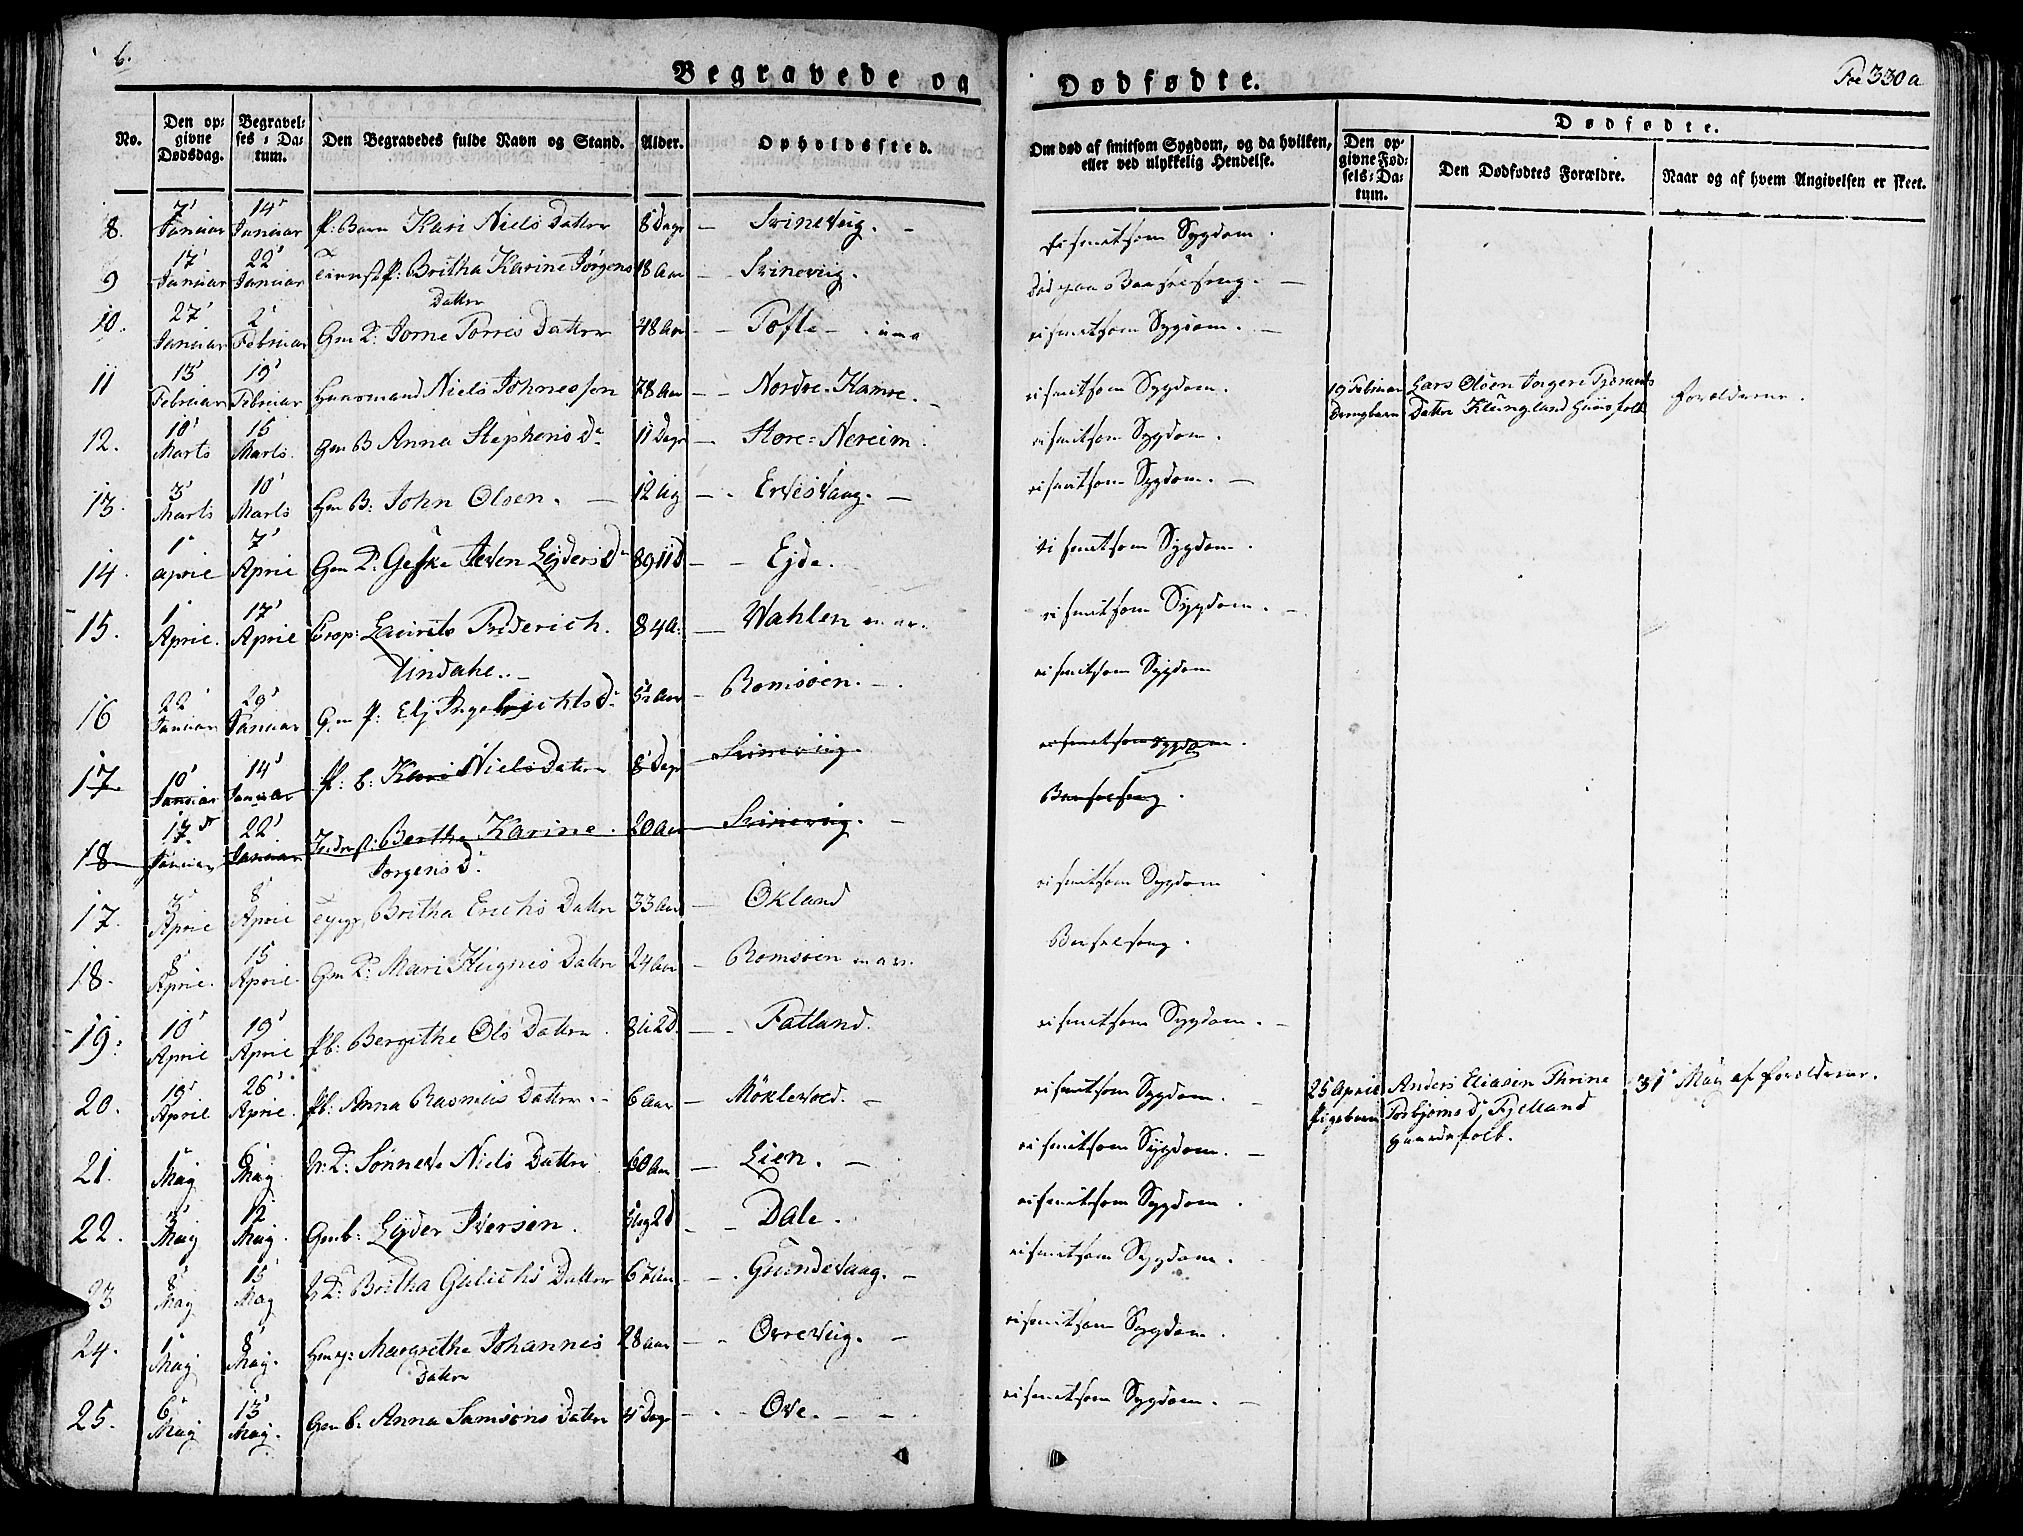 6.
Begravede og Dødfødte.
Foe 330a
No.
Den op-
givne
Dødsdag.
Begravel-
ses-Da-
tum.
Den Begravedes fulde Navn og Stand.
Alder.
Opholdssted.
Om død af smitsom Sygdom, og da hvilken,
eller ved ulykkelig Hendelse.
Dødfødte.
Den op-
givne Fød-
sels-Da-
tum.
Den Dødfødtes Forældre.
Naar og af hvem Angivelsen er skeet.
8. 7' Januar 14' Januar P: Barn Kari Niels Datter 8 Dage Svinevig. ei smitsom Sygdom.
9 17' Januar 22' Januar P: Britha Karine Jørgens 18 Aar Svineviig. Død paa Barselseng.
Datter
10. 27' Januar 2' Februar Gm K: Torres Datter 48 Aar Tofte ei smitsom Sygdom.
11 13' Februar 19' Februar Huusmand Niels Johnessøn 78 Aar Nordre-Hamre. ei smitsom Sygdom. 19 Februar Lars Olsen Forældrene.
Drengbarn Datter Klungland Huusfolk
12. 10' Marts 15 Marts Gm B Anna Stephens D 11 Dage Store-Nereim ei smitsom Sygdom.
13. 3' Marts 10' Marts Gm B: John Olsen. 12 Ug Ervesvaag. ei smitsom Sygdom.
14. 1' April 7' April Gm K: Geske Iversen Lyders D Ejde. ei smitsom Sygdom.
15. 1' April. 17' April Laurits Friderich 84 A. Wahlen ei smitsom Sygdom.
Lindahl.
16 22' Januar 29' Januar Gm P: Eli D Aar Romsøen. ei smitsom Sygdom
17. 10' Januar 14' Januar P: b: Kari Niels Datter 8 Dage Svineviig. ei smitsom Sygdom.
Barselseng.
18 17 Januar 22' Januar Bertha Karine 20 Aar Svinevig.
Jorgens D.
17. 3' April 8' April Britha Erichs Datter 33 Aar Økland ei smitsom Sygdom
18. 8' April. 15 April Gm K: Mari Datter 24 Aar Romsøen Barselseng.
19. 10' April 19' April Pb: Bergithe Ols Datter 8 U 2 D. Fatland. ei smitsom Sygdom.
20. 19' April 26' April Pb: Anna Rasmus Datter 6 Aar Möklevold. ei smitsom Sygdom. 25 April Anders Eliasen Thrine 31' May af Forældrene.
Pigebarn Torbjørns D, Fjelland
Gaardfolk.
21. 1' May 6' May K: Sønneve Niels Datter 60 Aar Lien. ei smitsom Sygdom.
22. 3' May 12 May. Gmb: Lyder Iversen. Dale. ei smitsom Sygdom.
23 8' May 15' May K: Britha Datter 67 Aar Gundevaag. ei smitsom Sygdom.
24. 1' May 8' May. Margrethe Johannes 28 Aar Øvrevig. ei smitsom Sygdom.
Datter
25. 6' May 13' May. Gm b. Anna Samsons Datter 4 Dage Ove. ei smitsom Sygdom.